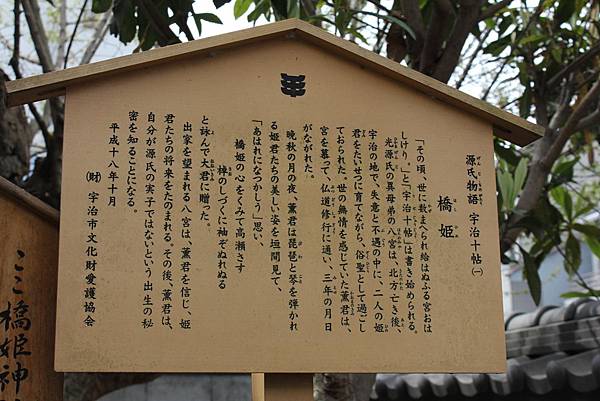 源氏物語 宇治十帖(一)
橋姫
「その頃、世に数まへられ給はぬふる宮おは
しけり。」と『宇治十帖』は書き始められる。
光源氏の異母弟の八宮は、北方亡き後、
宇治の地で、失意と不遇の中に、二人の姫
君をたいせつに育てながら、俗聖として過ごし
ておられた。世の無情を感じていた薫君は、
宮を慕って、仏道修行に通い、三年の月日
がながれた。
晩秋の月の夜、薫君は琵琶と琴を弾かれ
る姫君たちの美しい姿を垣間見て、
「あはれになつかしう」思い、
橋姫の心をくみて高瀬さす
棹のしづくに袖ぞぬれぬる
と詠んで大君に贈った。
出家を望まれる八宮は、薫君を信じ、姫
君たちの将来をたのまれる。その後、薫君は、
自分が源氏の実子ではないという出生の秘
密を知ることになる。
平成十八年十月
(財)宇治市文化財愛護協会
ここ橋姫神